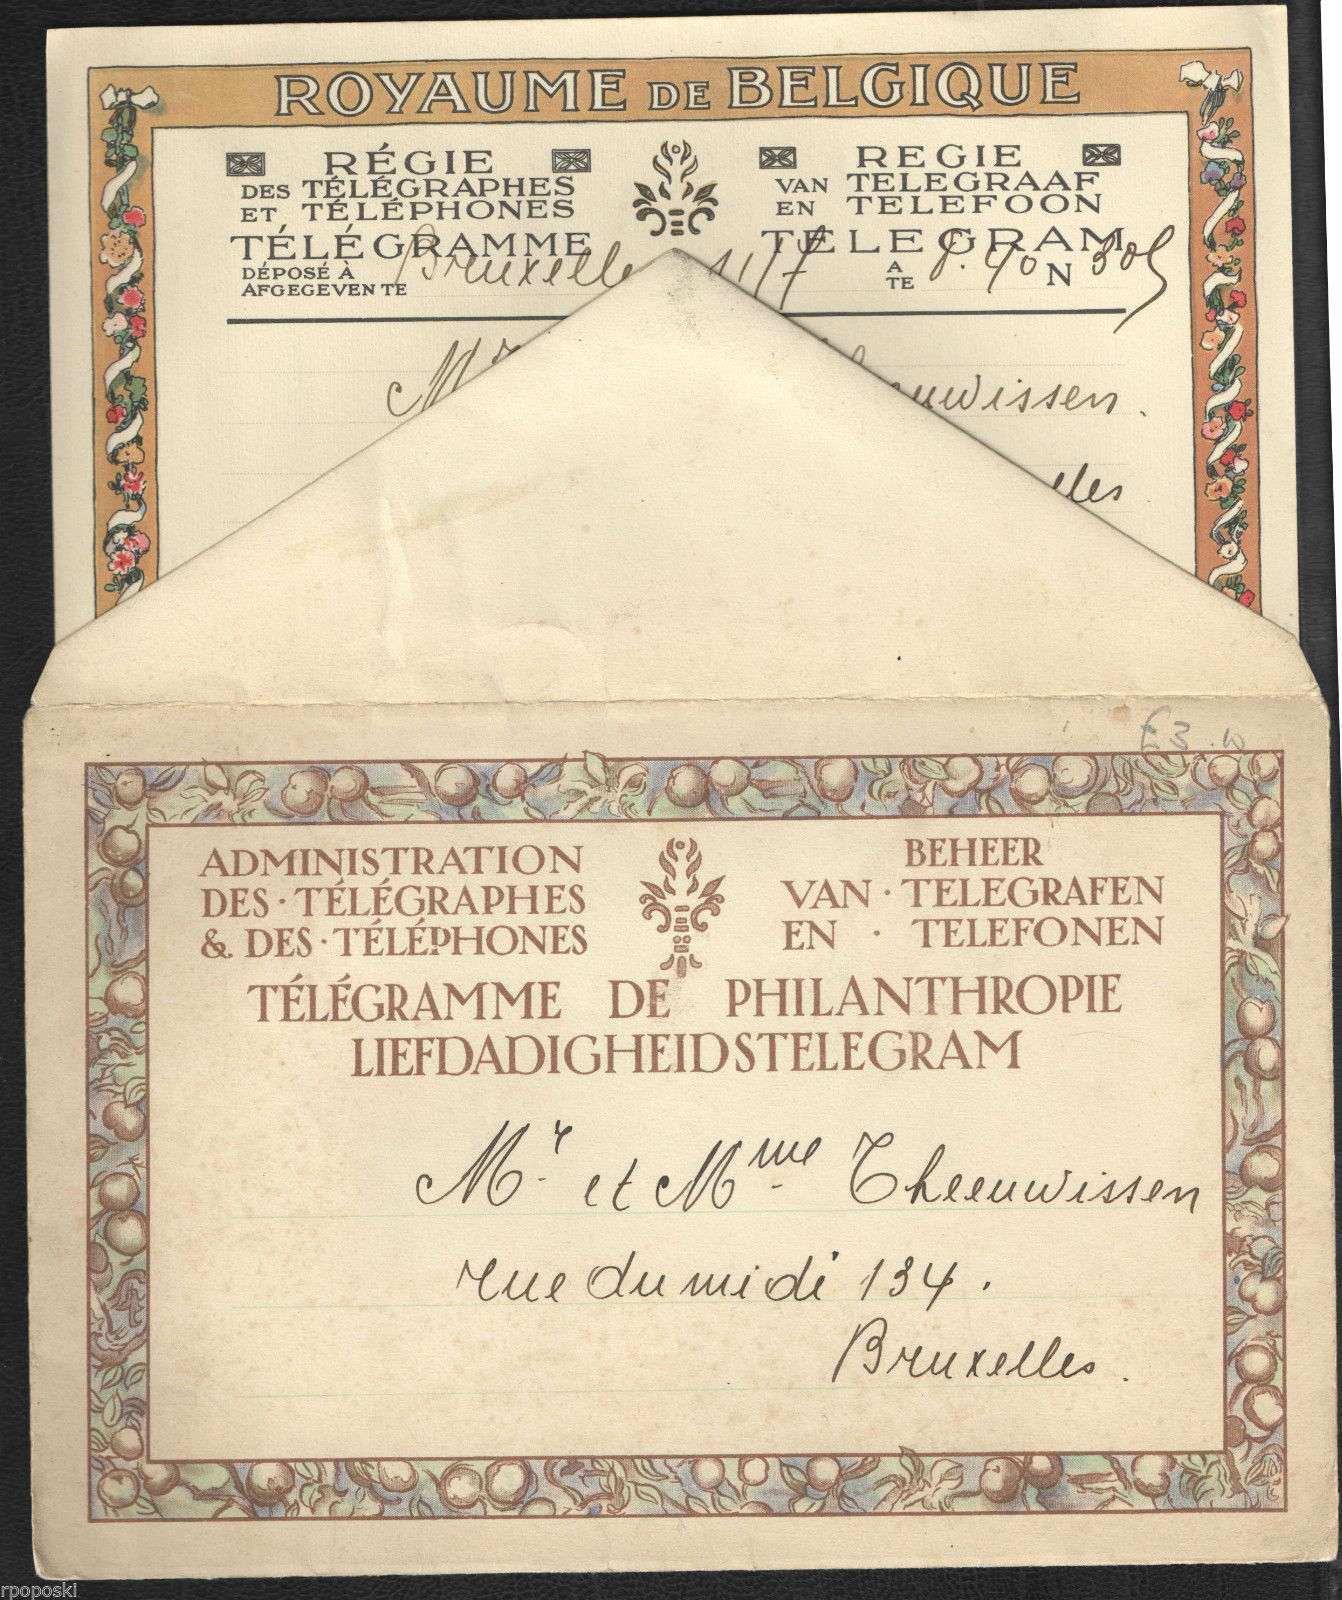 ROYAUME DE BELGIQUE
RÉGIE
DES TÉLÉGRAPHES
ET TÉLÉPHONES
TÉLÉGRAMME
DÉPOSÉ À
AFGEGEVEN TE
REGIE
VAN TELEGRAAF
EN TELEFOON
TELEGRAM
A
TE
N
Bruxelles 11/7 8.40 305
Mr
eeuwissen.
elles
£3.10
ADMINISTRATION
DES · TÉLÉGRAPHES
& DES · TÉLÉPHONES
BEHEER
VAN · TELEGRAFEN
EN · TELEFONEN
TÉLÉGRAMME DE PHILANTHROPIE
LIEFDADIGHEIDSTELEGRAM
Mr. et Mme Theeuwissen
rue du midi 134.
Bruxelles.
rpoposki